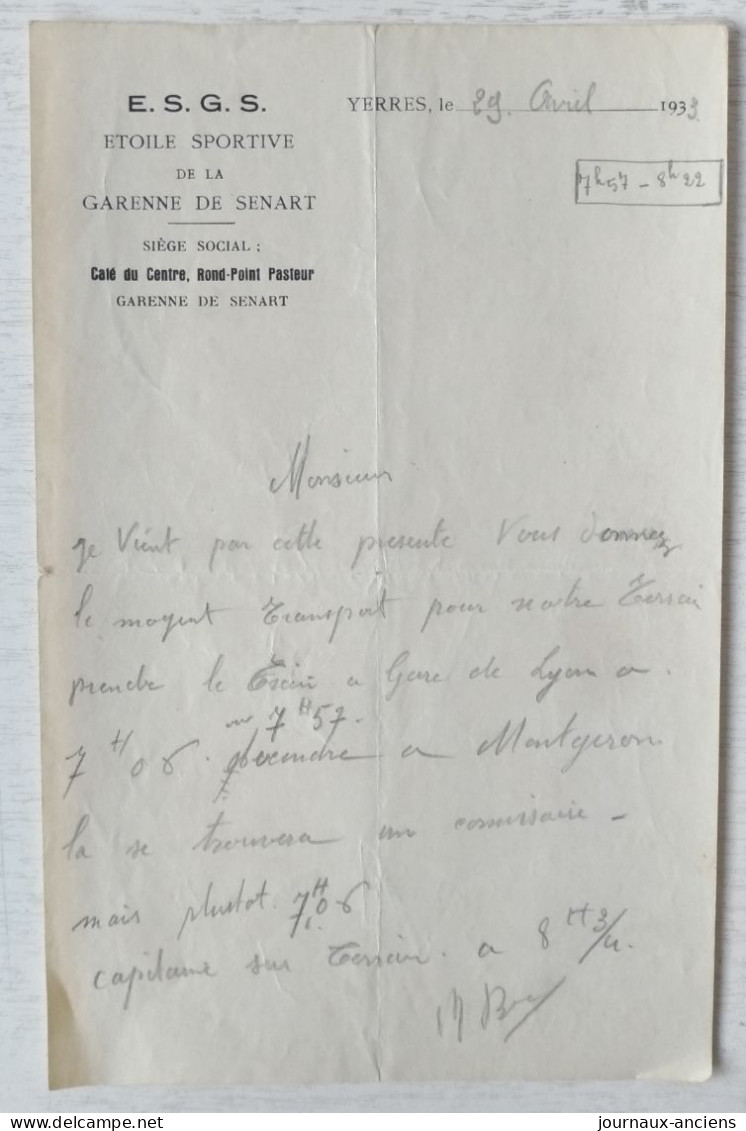 E. S. G. S.
ETOILE SPORTIVE
DE LA
GARENNE DE SENART
SIÈGE SOCIAL :
Café du Centre, Rond-Point Pasteur
GARENNE DE SENART
YERRES, le 29. Avril 1933
7h57 - 8h22
Monsieur
je Vient, par cette presente Vous donnez
le moyent Transport pour notre Terrain
prendre le Train a Gare de Lyon a
ou 7H57.
7H06. descendre a Montgeron
la se trouvera un commissaire -
mais plustot. 7H06
capitaine sur Terrain. a 8H3/4.
journaux-anciens